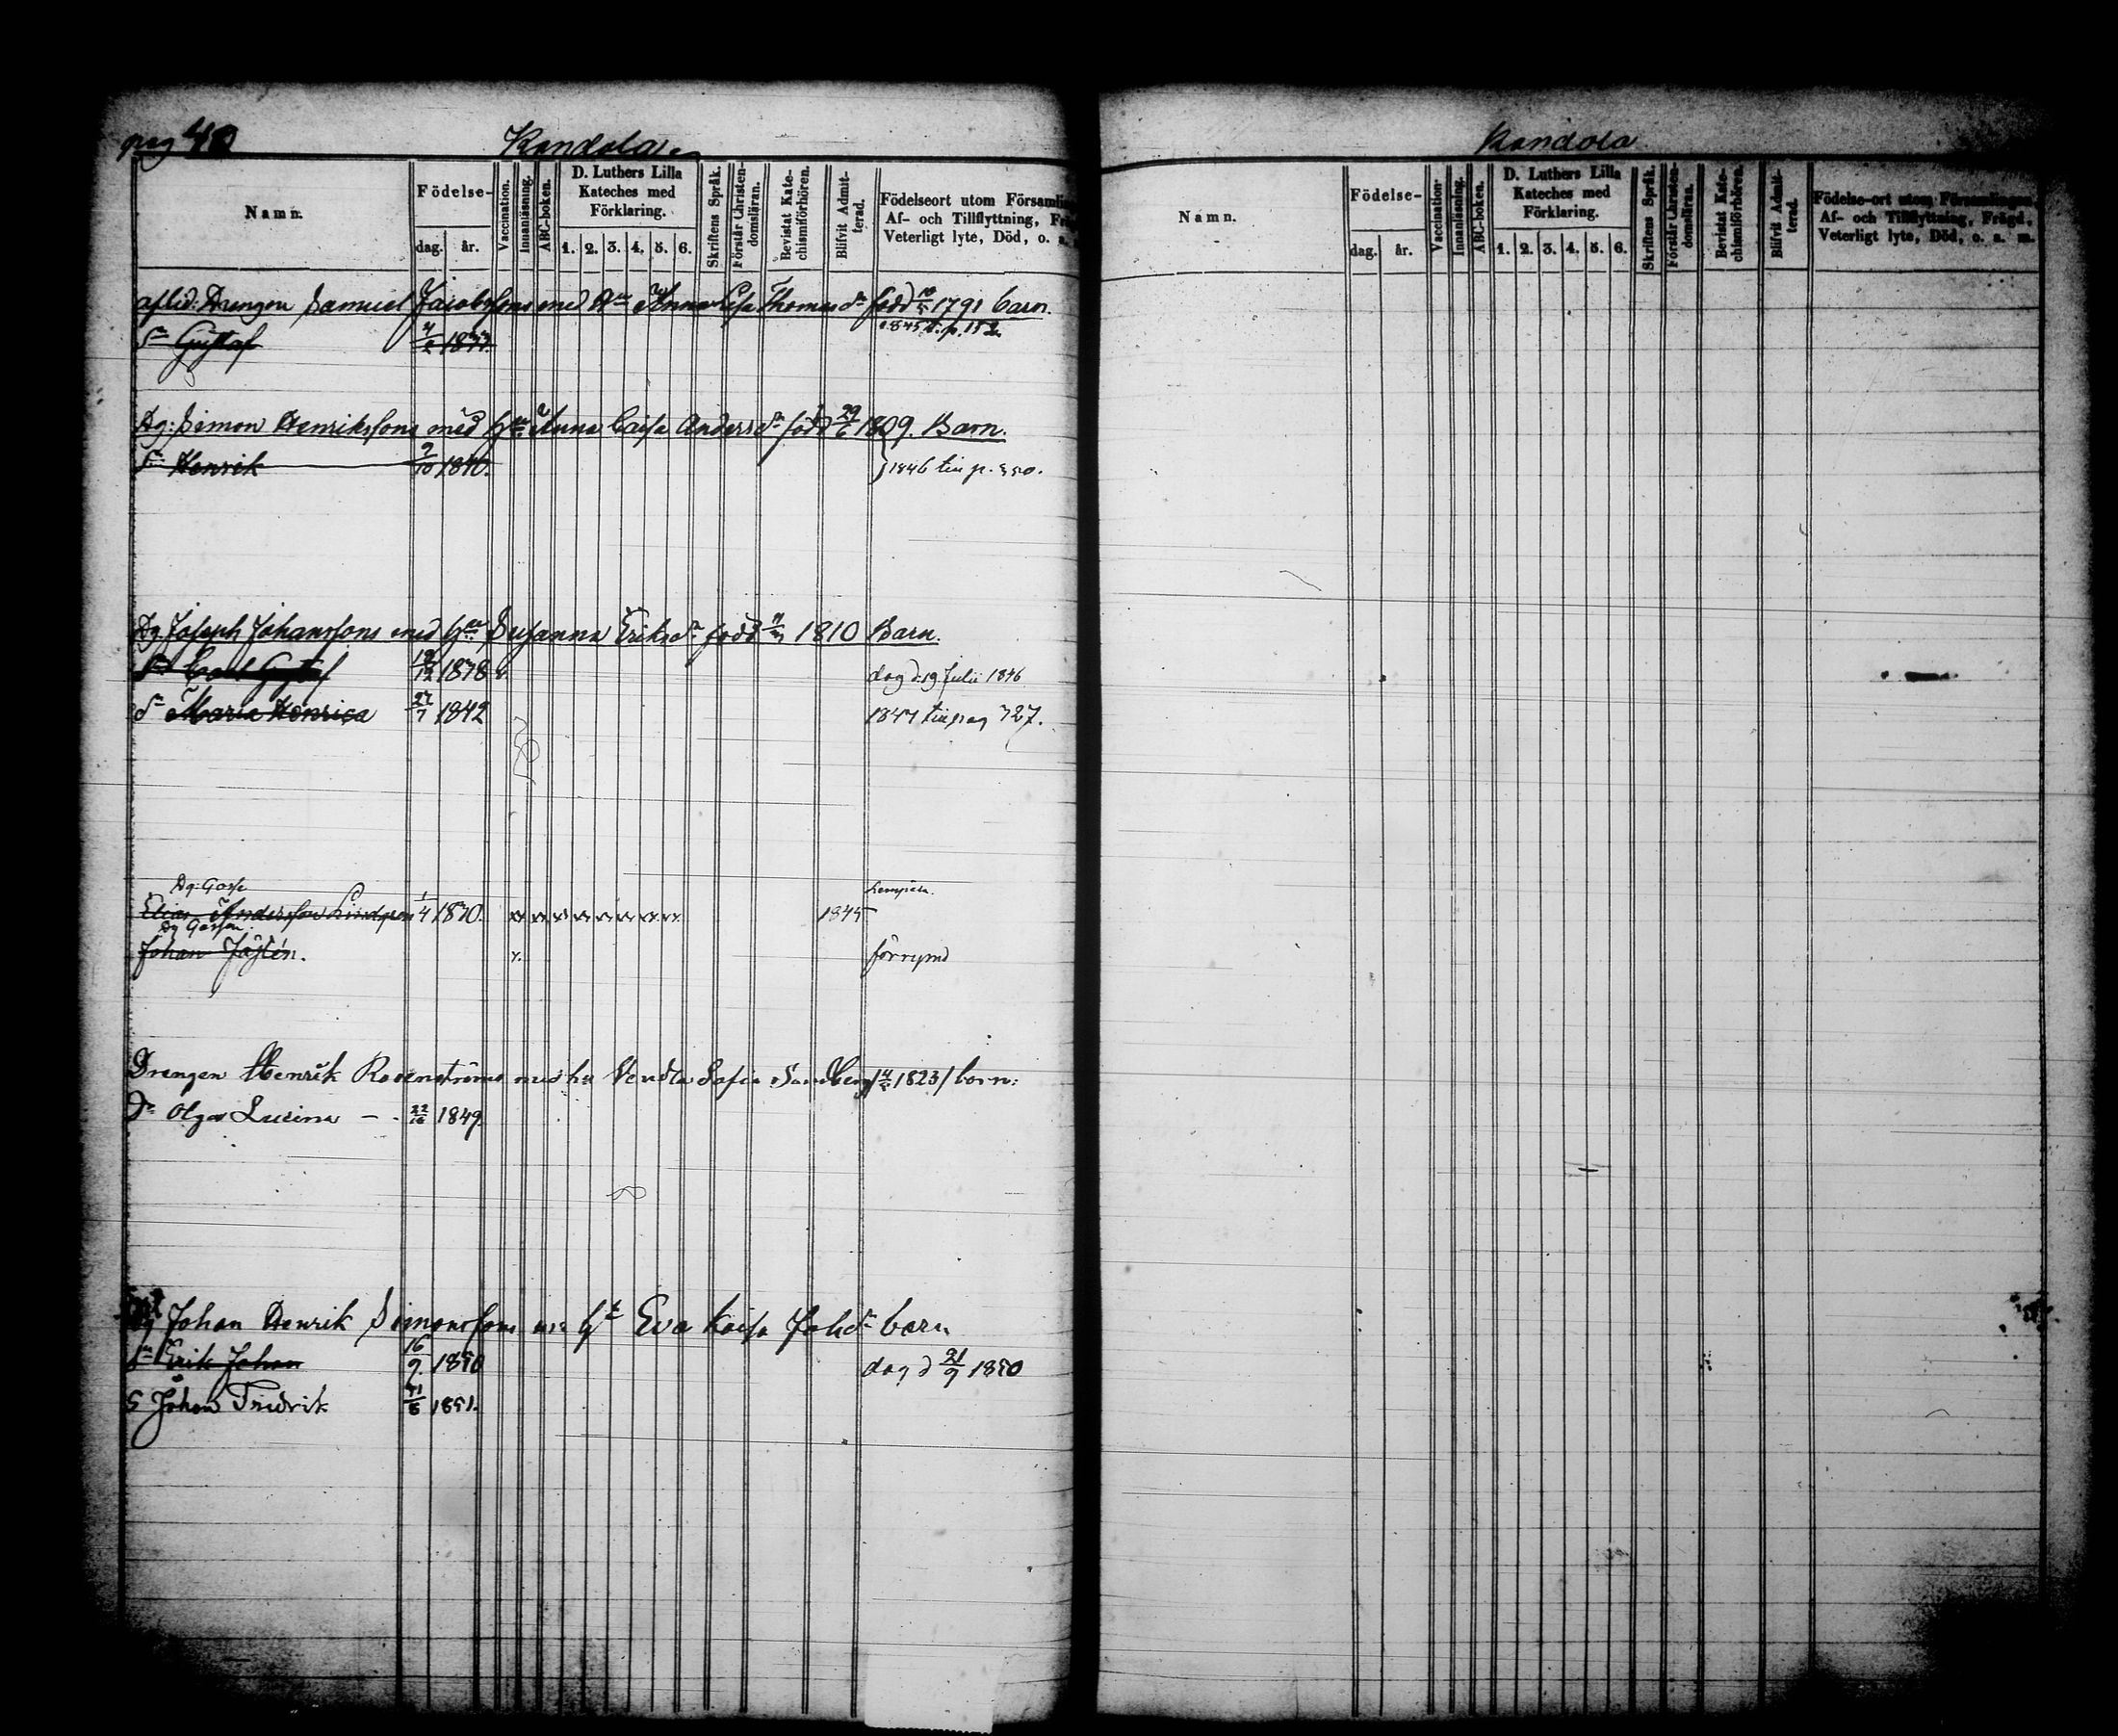 pag 40
Kandola
Namn.
Födelse-
dag. år.
Vaccination.
Innanläsning.
ABC-boken.
D. Luthers Lilla
Kateches med
Förklaring.
1. 2. 3. 4. 5. 6.
Skriftens Språk.
Förstår Christen-
domsläran.
Bevistat Kate-
chismiförhören.
Blifvit Admit-
terad.
Födelseort utom Församli
Af- och Tillflyttning,
Veterligt lyte, Död, o. a.
aflid: Drengen Samuel Jacobssons med Anna Lisa Thomas dr född 1791 barn.
Sn Gustaf
1845 t. p. 152
Dg: Simon Henrikssons med Hu Anna Caisa Anders dr född 29/6 1809. Barn.
Sn Henrik 9/10 1840. 1846 till p. 350.
Dg Joseph Johanssons med Hu Susanna Eriks dr född 1810 Barn.
Sn Carl Gustaf 1838 v. dog d. 19 Julii 1846
Dr Maria Henrica 27/7 1842 1847 till pag 327.
Dg: Gosse
Elias Andersson Lindgren 1/4 1830. 1845
Dg Gossen
Johan v. förrymd
Drengen Henrik Rosenströms med hu Vendla Sofia Sandberg 1823 / barn:
Dr Olga Lucina - . 1849.
Dg Johan Henrik Simonssons Hu Eva Kaisa Joh dr barn
Sn Erik Johan 16/9 1850 dog d 21/9 1850
S Johan Fridrik 1851.
Kandola
Namn.
Födelse-
dag. år.
Vaccination.
Innanläsning.
ABC-boken.
D. Luthers Lilla
Kateches med
Förklaring.
1. 2. 3. 4. 5. 6.
Skriftens Språk.
Förstår Christen-
domsläran.
Bevistat Kate-
chismiförhören.
Blifvit Admit-
terad.
Födelse-ort utom Församlingen,
Af- och Tillflyttning, Frägd,
Veterligt lyte, Död, o. a. m.